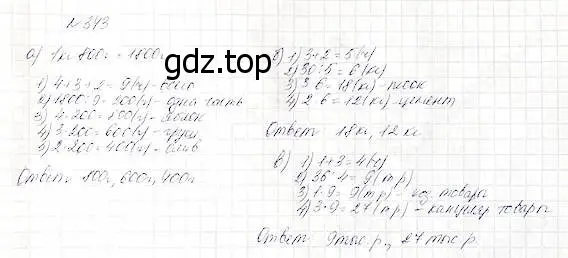 №343
а) 1кг 800г = 1800г
1) 4+3+2=9(ч)-всего
2) 1800:9=200(г)-одна часть
3) 4·200=800(г)-яблок
4) 3·200=600(г)-груш
5) 2·200=400(г)-слив
Ответ: 800г, 600г, 400г
б) 1) 3+2=5(ч)
2) 30:5=6(кг)
3) 3·6=18(кг)-песок
4) 2·6=12(кг)-цемент
Ответ: 18кг, 12кг
в) 1) 1+3=4(ч)
2) 36:4=9(т.р)
3) 1·9=9(т.р) - товары
4) 3·9=27(т.р)-канцеляр товары
Ответ: 9тыс.р., 27тыс.р.
gdz.top